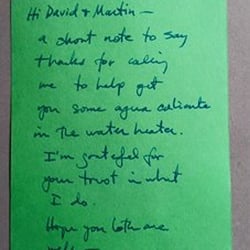 Hi David & Martin —
a short note to say
thanks for calling
me to help get
you some agua caliente
in the water heater.
I'm grateful for
your trust in what
I do.
Hope you both are
well —